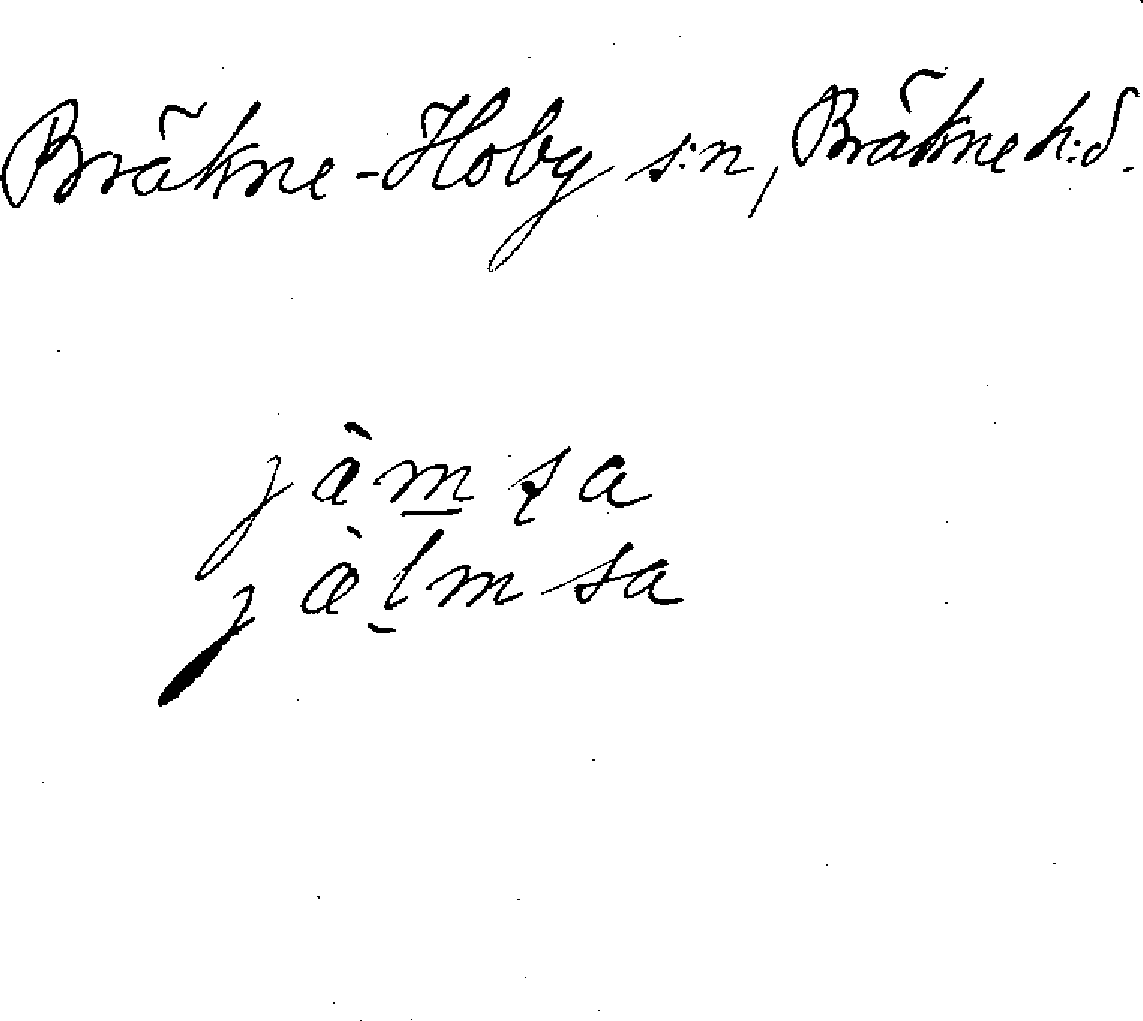 Bräkne-Hoby s:n, Bräkne h:d.
jàm̲sa
jæ̀l̲msa